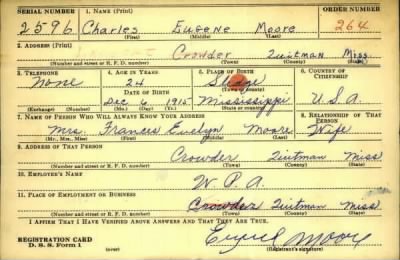 SERIAL NUMBER 1. NAME (Print) ORDER NUMBER
2596 Charles Eugene Moore 264
(First) (Middle) (Last)
2. ADDRESS (Print)
Crowder Quitman Miss
(Number and street or R. F. D. number) (Town) (County) (State)
3. TELEPHONE 4. AGE IN YEARS 5. PLACE OF BIRTH 6. COUNTRY OF CITIZENSHIP
None 24
DATE OF BIRTH (Town or county)
Dec 6 1915 Mississippi U.S.A.
(Exchange) (Number) (Mo.) (Day) (Yr.) (State or country)
7. NAME OF PERSON WHO WILL ALWAYS KNOW YOUR ADDRESS 8. RELATIONSHIP OF THAT PERSON
Mrs. Frances Evelyn Moore Wife
(Mr., Mrs., Miss) (First) (Middle) (Last)
9. ADDRESS OF THAT PERSON
Crowder Quitman Miss
(Number and street or R. F. D. number) (Town) (County) (State)
10. EMPLOYER'S NAME
W.P.A.
11. PLACE OF EMPLOYMENT OR BUSINESS
Crowder Quitman Miss
(Number and street or R. F. D. number) (Town) (County) (State)
I AFFIRM THAT I HAVE VERIFIED ABOVE ANSWERS AND THAT THEY ARE TRUE.
REGISTRATION CARD
D. S. S. Form 1 Moore
(Registrant's signature)